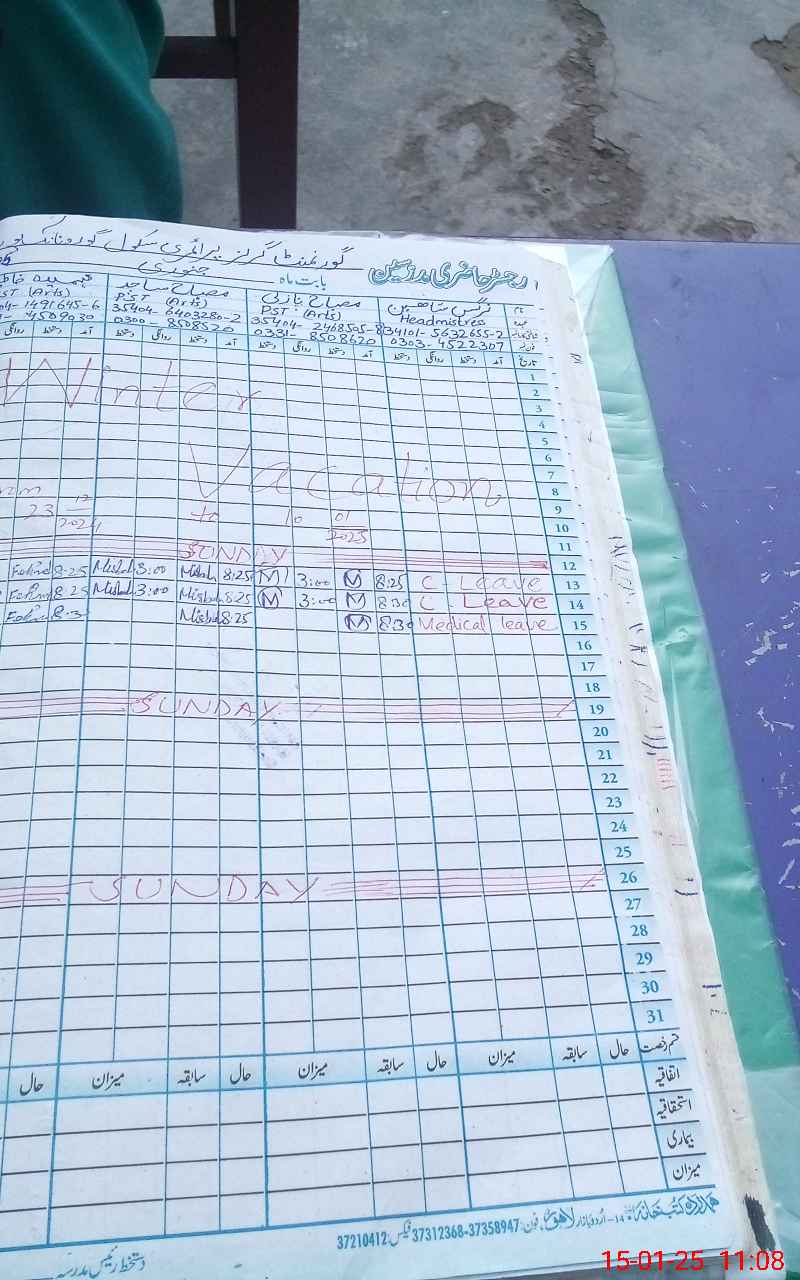 گورنمنٹ گرلز پرائمری سکول گورونانک
رجسٹر حاضری مدرسین
بابت ماہ جنوری
نام نرگس شاھین مصباح نیازی مصباح ساجد فہمیدہ
عہدہ Headmistres PST (Arts) PST (Arts) PST (Arts)
34101-5632655-2 35404-2468505-8 35404-6403280-2 04-1491645-6
0303-4522307 0331-8508620 0300-8508520 4509930
تاریخ آمد دستخط روانگی دستخط آمد دستخط روانگی دستخط آمد دستخط روانگی دستخط
1
2
Winter
3
4
5
6
7
Vacation
8
9
23 12/2024 to 10 01/2025
10
11
SUNDAY
12
8:25 Misbah 3:00 Misbah 8:25 M 3:00 M 8:25 C. Leave
13
8:25 Misbah 3:00 Misbah 8:25 M 3:00 M 8:30 C. Leave
14
8:3 Misbah 8:25 M 8:30 Medical leave
15
16
17
18
SUNDAY
19
20
21
22
23
24
25
SUNDAY
26
27
28
29
30
31
قسم رخصت حال سابقہ میزان حال سابقہ میزان حال سابقہ میزان حال
اتفاقیہ
استحقاقیہ
بیماری
میزان
ہمدرد کتب خانہ 14-اردو بازار لاہور فون: 37358947-37312368 فیکس: 37210412
دستخط رئیس مدرسہ
15-01-25 11:08